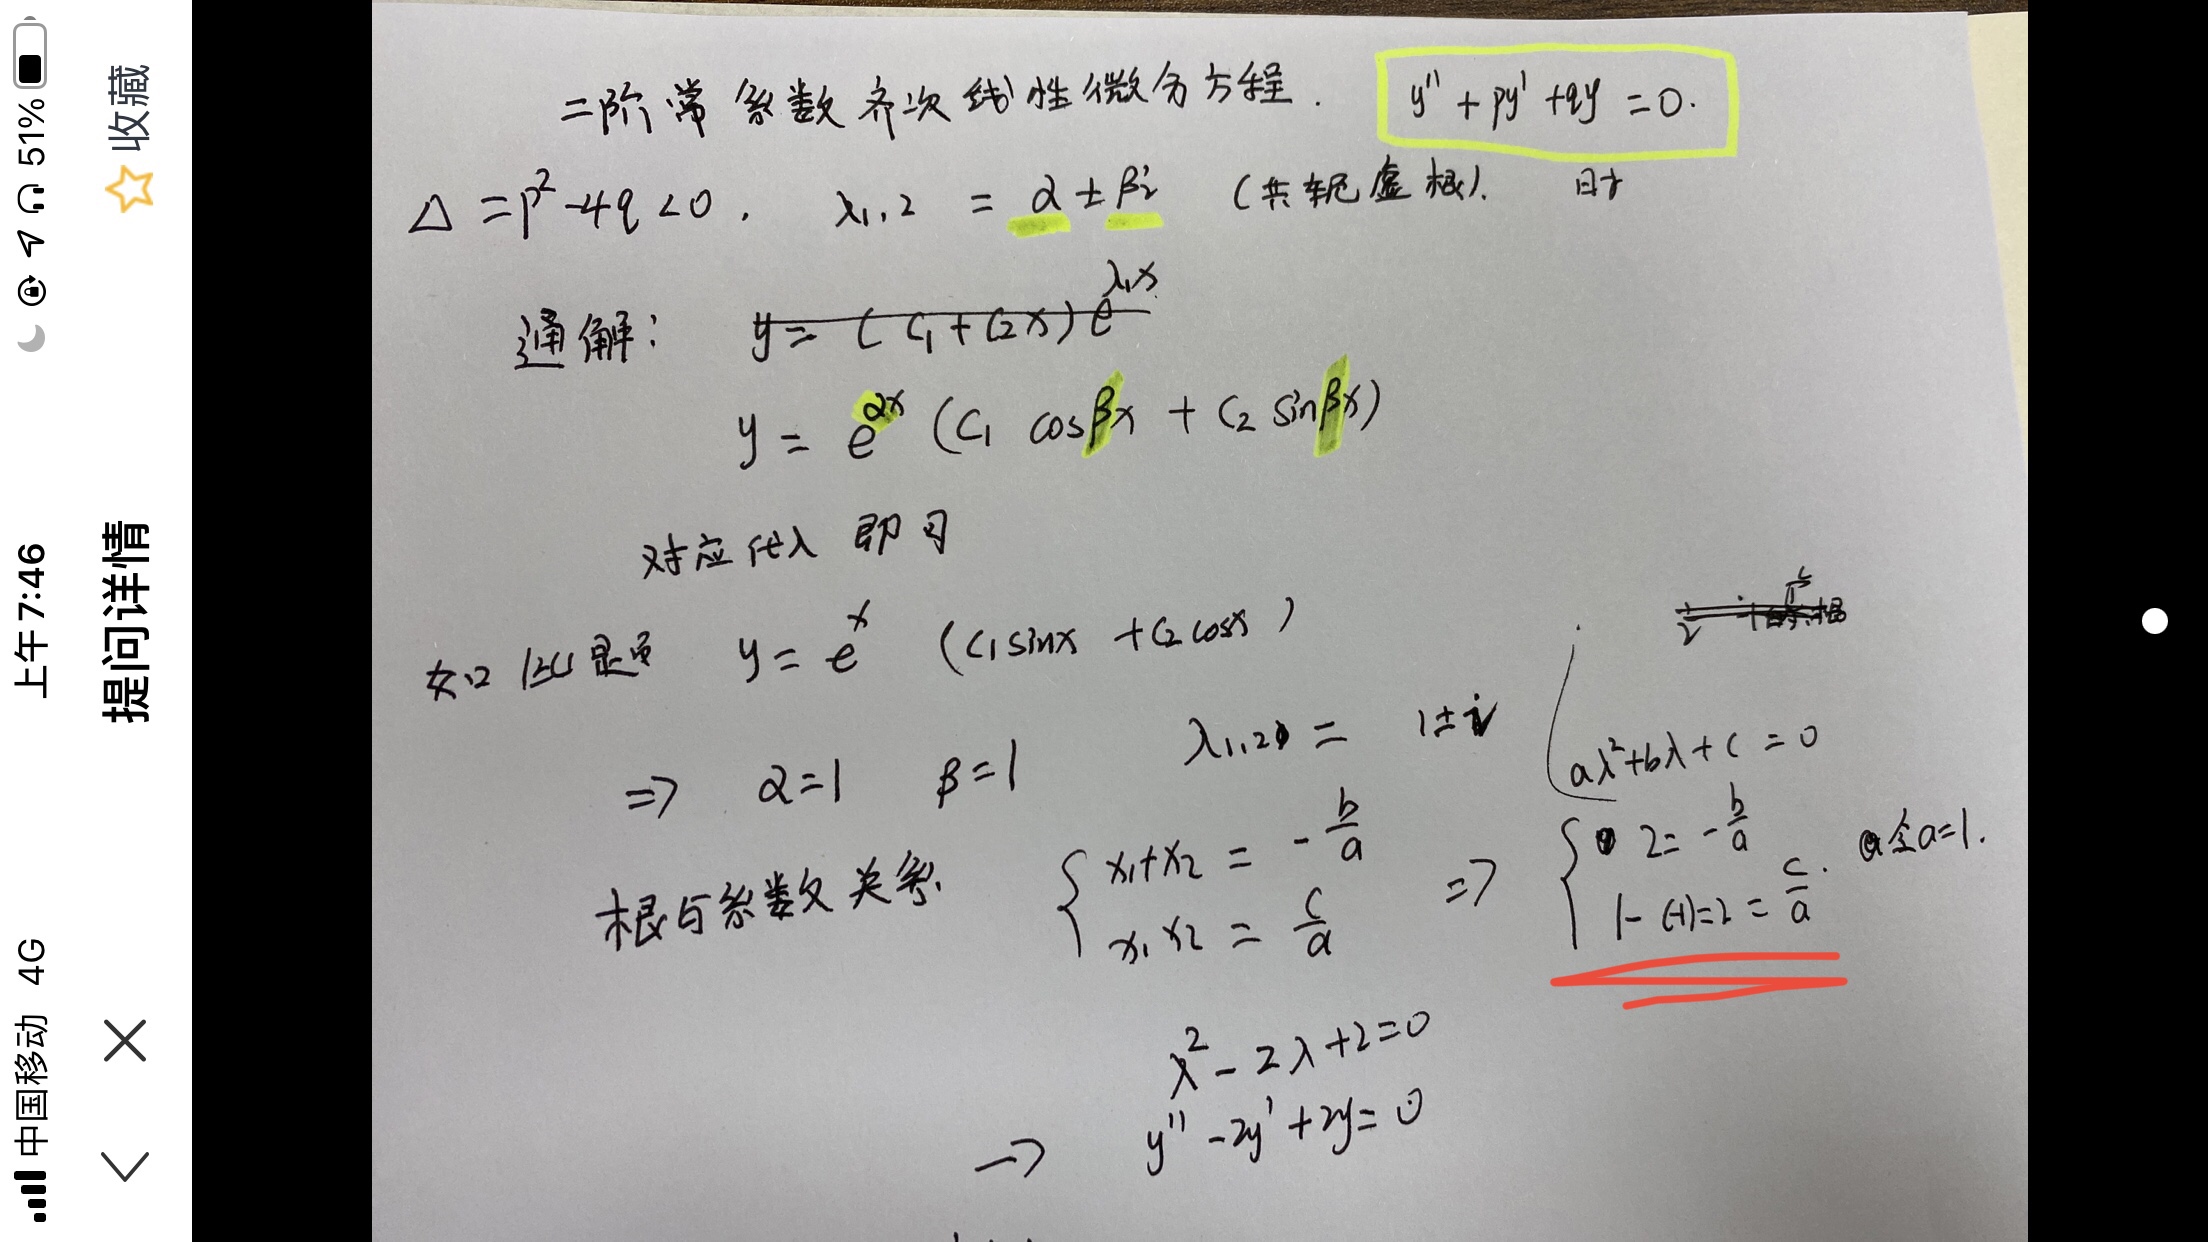 中国移动 4G 上午 7:46 51%
提问详情 收藏
二阶常系数齐次线性微分方程. y''+py'+qy=0.
Δ=p²-4q<0. λ1,2 = α±βi (共轭虚根). 时
通解: y=(C1+C2x)e^λ1x
y=e^αx (C1 cosβx + C2 sinβx)
对应代入即可
如此题 y=e^x (C1sinx+C2cosx)
λ1,2= 1±i
⇒ α=1 β=1
aλ²+bλ+c=0
根与系数关系 { x1+x2=-b/a ⇒ { 2=-b/a 令a=1.
x1x2=c/a 1-(-1)=2=c/a.
λ²-2λ+2=0
→ y''-2y'+2y=0